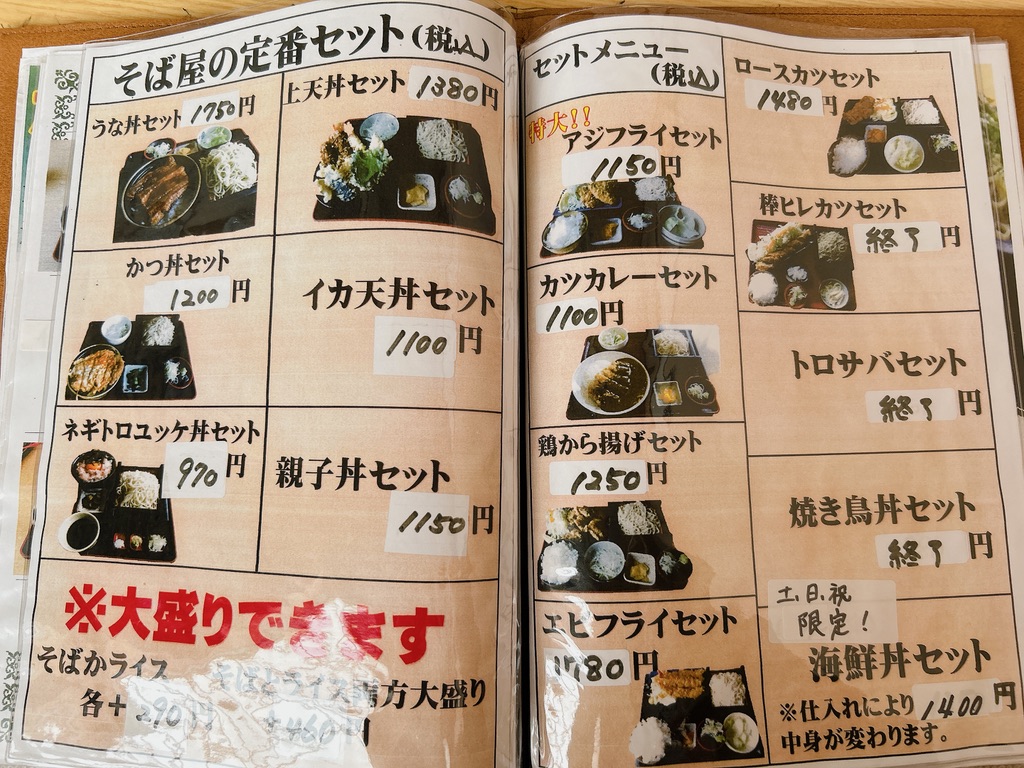 そば屋の定番セット(税込)
うな丼セット 1750円
上天丼セット 1380円
かつ丼セット
1200円
イカ天丼セット
1100円
ネギトロユッケ丼セット
970円
親子丼セット
1150円
※大盛りできます
そばかライス
各+290円
そばとライス両方大盛り
+460円
セットメニュー
(税込)
特大!!
アジフライセット
1150円
カツカレーセット
1100円
鶏から揚げセット
1250円
エビフライセット
1780円
ロースカツセット
1480円
棒ヒレカツセット
終了円
トロサバセット
終了円
焼き鳥丼セット
終了円
土、日、祝
限定!
海鮮丼セット
※仕入れにより 1400円
中身が変わります。